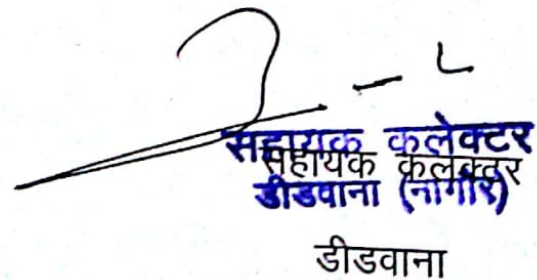 सहायक कलेक्टर
सहायक कलक्टर
डीडवाना (नागौर)
डीडवाना